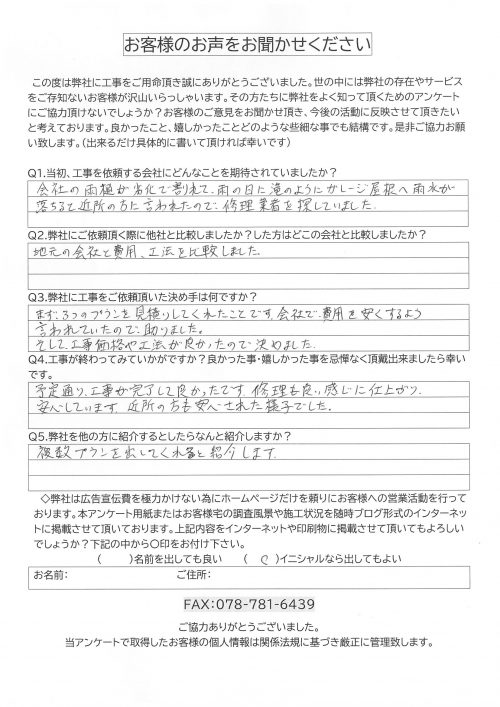 お客様のお声をお聞かせください
この度は弊社に工事をご用命頂き誠にありがとうございました。世の中には弊社の存在やサービス
をご存知ないお客様が沢山いらっしゃいます。その方たちに弊社をよく知って頂くためのアンケート
にご協力頂けないでしょうか？お客様のご意見をお聞かせ頂き、今後の活動に反映させて頂きたい
と考えております。良かったこと、嬉しかったことどのような些細な事でも結構です。是非ご協力お願
い致します。（出来るだけ具体的に書いて頂ければ幸いです）
Q1.当初、工事を依頼する会社にどんなことを期待されていましたか？
会社の雨樋が劣化で割れて、雨の日に滝のようにガレージ屋根へ雨水が
落ちると近所の方に言われたので、修理業者を探していました。
Q2.弊社にご依頼頂く際に他社と比較しましたか？した方はどこの会社と比較しましたか？
地元の会社と費用、工法を比較しました。
Q3.弊社に工事をご依頼頂いた決め手は何ですか？
まず、3つのプランを見積りしてくれたことです。会社で、費用を安くするよう
言われていたので助りました。
そして、工事価格や工法が良かったので決めました。
Q4.工事が終わってみていかがですか？良かった事・嬉しかった事を忌憚なく頂戴出来ましたら幸い
です。
予定通り、工事が完了して良かったです。修理も良い感じに仕上がり、
安心しています。近所の方も安心された様子でした。
Q5.弊社を他の方に紹介するとしたらなんと紹介しますか？
複数プランを出してくれると紹介します。
◇弊社は広告宣伝費を極力かけない為にホームページだけを頼りにお客様への営業活動を行って
おります。本アンケート用紙またはお客様宅の調査風景や施工状況を随時ブログ形式のインターネッ
トに掲載させて頂いております。上記内容をインターネットや印刷物に掲載させて頂いてもよろしい
でしょうか？下記の中から〇印をお付け下さい。
（　　）名前を出しても良い　（　○　）イニシャルなら出してもよい
お名前：　ご住所：
FAX:078-781-6439
ご協力ありがとうございました。
当アンケートで取得したお客様の個人情報は関係法規に基づき厳正に管理致します。